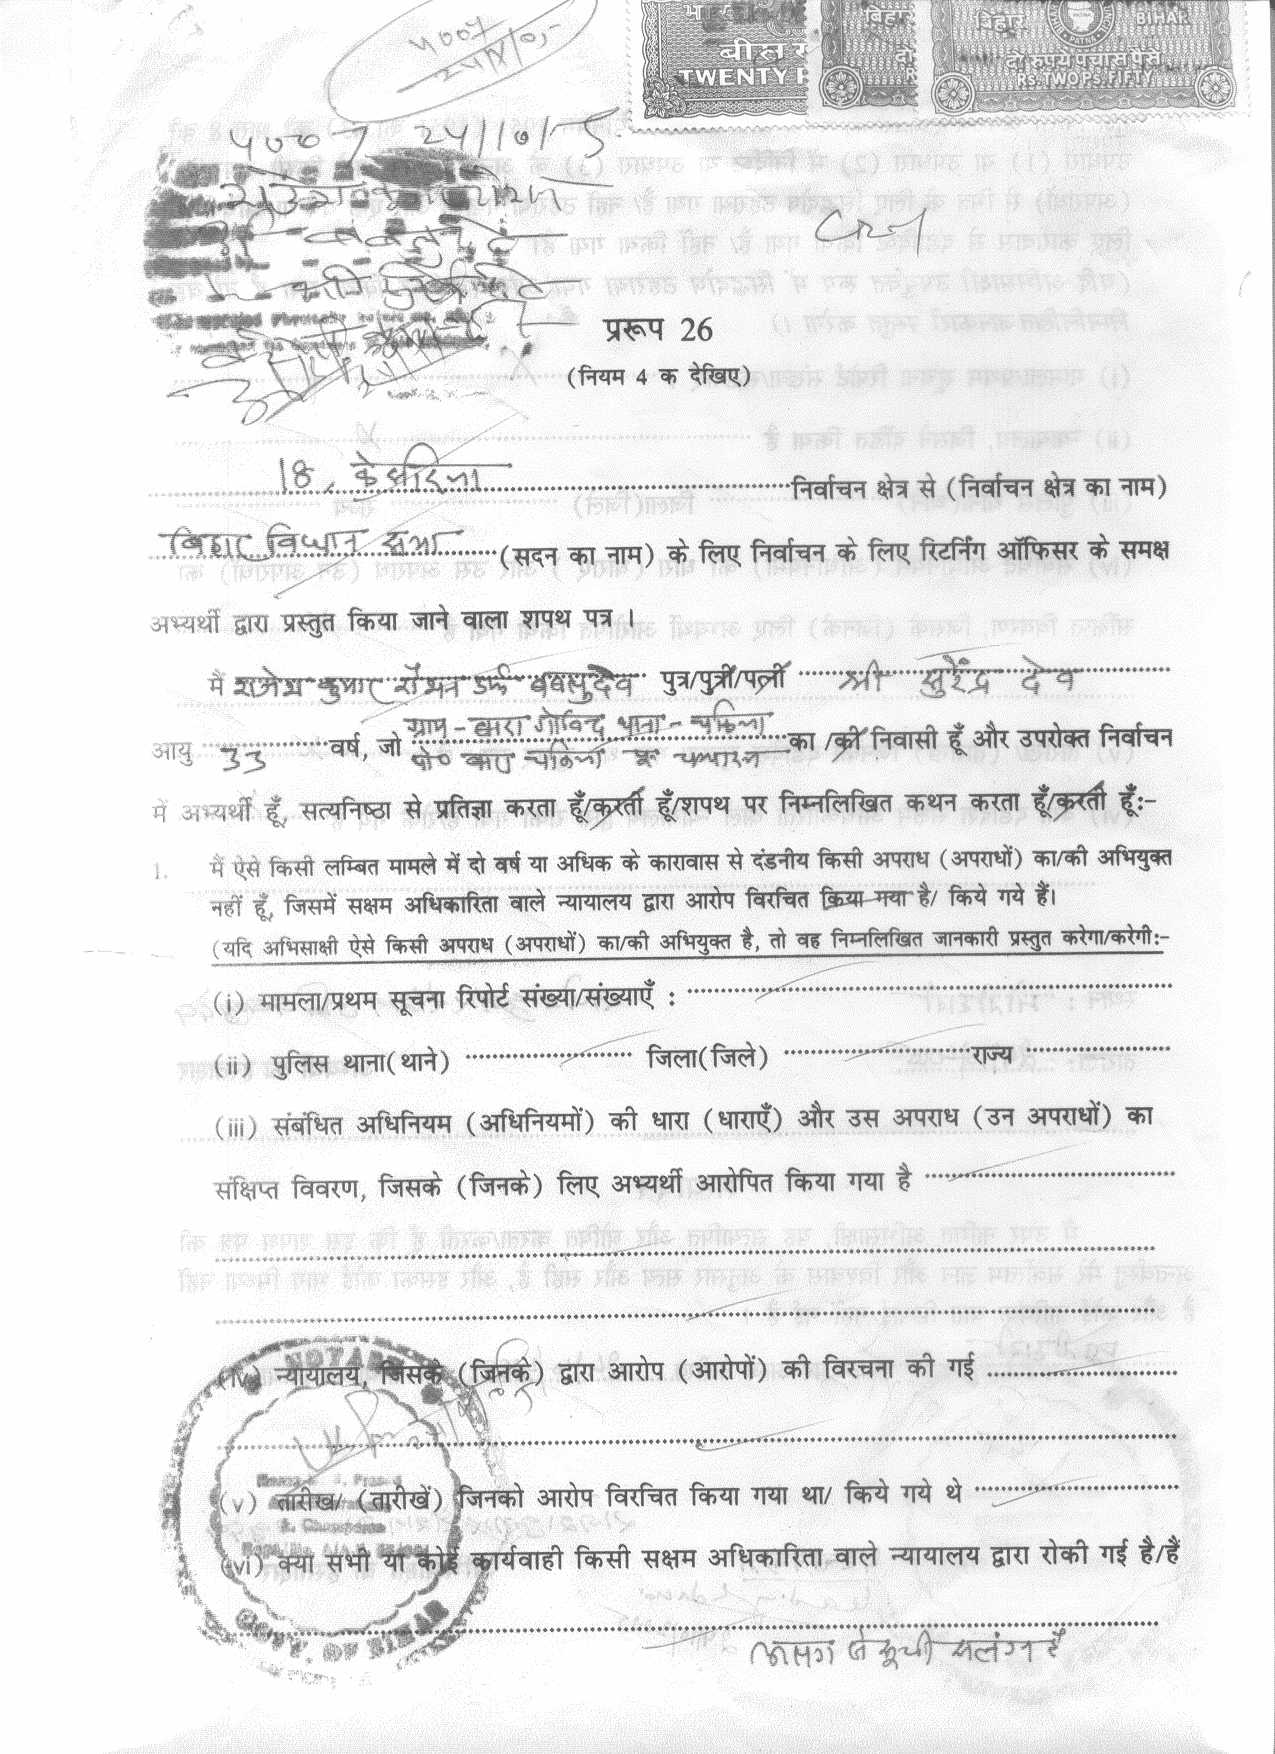 बिहार
बिहार
BIHAR
दो रुपये पचास पैसे
TWENTY
RS. TWO PS. FIFTY
प्ररूप 26
(नियम 4 क देखिए)
18, केसरिया निर्वाचन क्षेत्र से (निर्वाचन क्षेत्र का नाम)
बिहार विधान सभा (सदन का नाम) के लिए निर्वाचन के लिए रिटर्निंग ऑफिसर के समक्ष
अभ्यर्थी द्वारा प्रस्तुत किया जाने वाला शपथ पत्र ।
मैं राजेश कुमार रौशन उर्फ बबलु देव पुत्र/पुत्री/पत्नी श्री सुरेंद्र देव
ग्राम - बारा गोविन्द थाना - चकिया
आयु 33 वर्ष, जो का /की निवासी हूँ और उपरोक्त निर्वाचन
पो० बारा चकिया पू० चम्पारन
में अभ्यर्थी हूँ, सत्यनिष्ठा से प्रतिज्ञा करता हूँ/करती हूँ/शपथ पर निम्नलिखित कथन करता हूँ/करती हूँ:-
1. मैं ऐसे किसी लम्बित मामले में दो वर्ष या अधिक के कारावास से दंडनीय किसी अपराध (अपराधों) का/की अभियुक्त
नहीं हूँ, जिसमें सक्षम अधिकारिता वाले न्यायालय द्वारा आरोप विरचित किया गया है/ किये गये हैं।
(यदि अभिसाक्षी ऐसे किसी अपराध (अपराधों) का/की अभियुक्त है, तो वह निम्नलिखित जानकारी प्रस्तुत करेगा/करेगी:-
(i) मामला/प्रथम सूचना रिपोर्ट संख्या/संख्याएँ :
(ii) पुलिस थाना(थाने) जिला(जिले) राज्य
(iii) संबंधित अधिनियम (अधिनियमों) की धारा (धाराएँ) और उस अपराध (उन अपराधों) का
संक्षिप्त विवरण, जिसके (जिनके) लिए अभ्यर्थी आरोपित किया गया है
NOTARY
(iv) न्यायालय, जिसके (जिनके) द्वारा आरोप (आरोपों) की विरचना की गई
(v) तारीख/ (तारीखें) जिनको आरोप विरचित किया गया था/ किये गये थे
(vi) क्या सभी या कोई कार्यवाही किसी सक्षम अधिकारिता वाले न्यायालय द्वारा रोकी गई है/हैं
GOVT. OF BIHAR
अलग से सूची संलग्न है